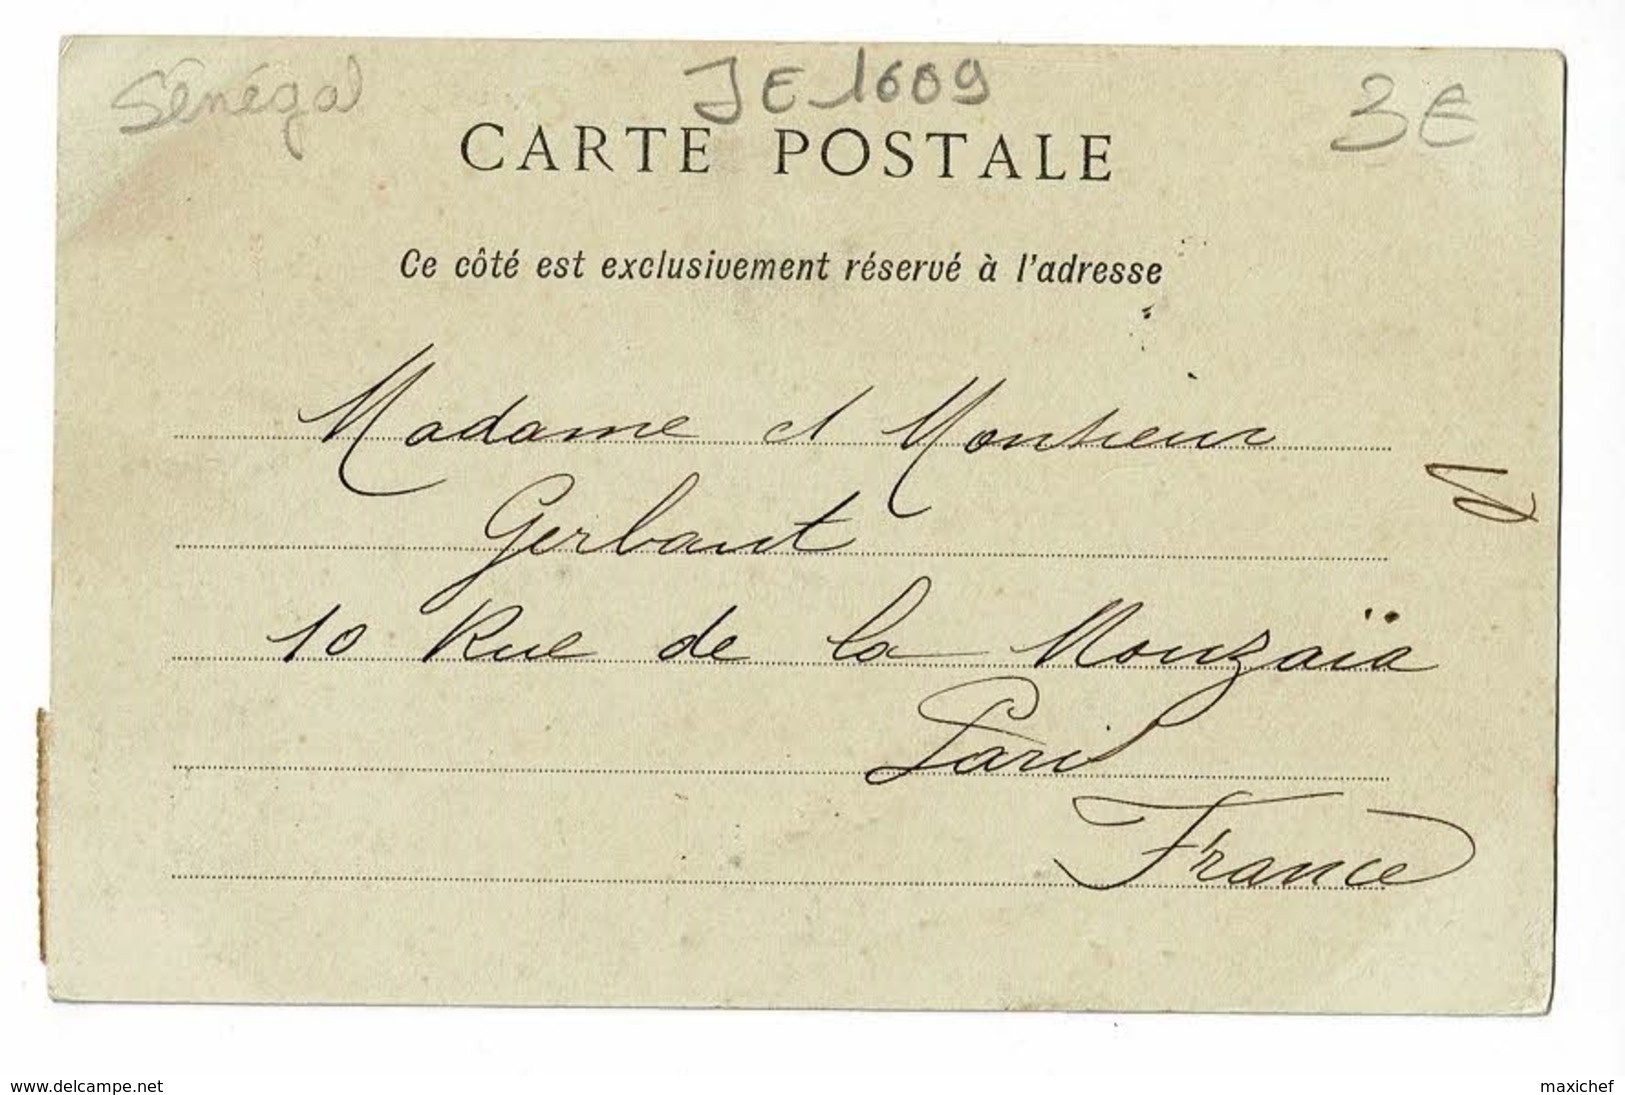 Sénégal
JE 1609
3€
CARTE POSTALE
Ce côté est exclusivement réservé à l'adresse
Madame et Monsieur
Gerbaut
10 Rue de la Mouzaïa
Paris
France
www.delcampe.net
maxichef